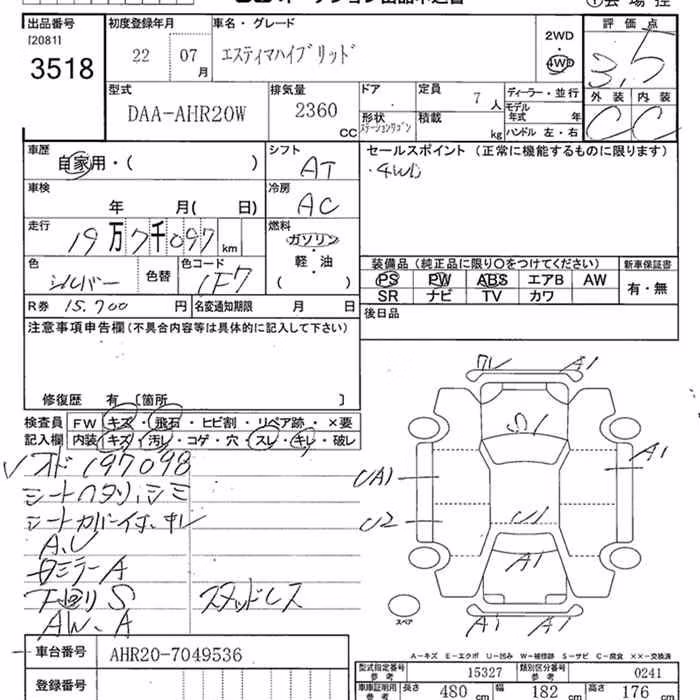 出品番号
[20811]
3518
初度登録年月
22 07 月
車名・グレード
エスティマハイブリッド
2WD
4WD
評価点
3.5
外装 内装
C C
型式
DAA-AHR20W
排気量
2360 CC
ドア
定員
7 人
形状
ステーションワゴン
積載
kg
ディーラー・並行
モデル年式 年
ハンドル 左・右
車歴
自家用・( )
シフト
AT
車検
年 月( 日)
冷房
AC
走行
19万7千097 km
燃料
ガソリン・
軽・油
( )
色
シルバー
色替
色コード
1F7
R券 15,700 円
名変通知期限 月 日
セールスポイント (正常に機能するものに限ります)
・4WD
装備品 (純正品に限り○をつけてください)
PS PW ABS エアB AW
SR ナビ TV カワ
新車保証書
有・無
後日品
注意事項申告欄(不具合内容等は具体的に記入して下さい)
修復歴 有 [箇所 ]
検査員記入欄
FW キズ・飛石・ヒビ割・リペア跡・×要
内装 キズ・汚レ・コゲ・穴・スレ・キレ・破レ
✓オド 197098
シートヘタリ、シミ
シートカバー付、キレ
A、U
ミラーA
下回りS
スタッドレス
AW、A
A1
S1
A1
UA1
U2
U1
A1
A1 A1
スペア
A-キズ E-エクボ U-凹み W-補修跡 S-サビ C-腐食 ××-交換済
車台番号 AHR20-7049536
登録番号
型式指定番号 参考 15327
類別区分番号 参考 0241
車庫証明用 参考 長さ 480 cm 幅 182 cm 高さ 176 cm